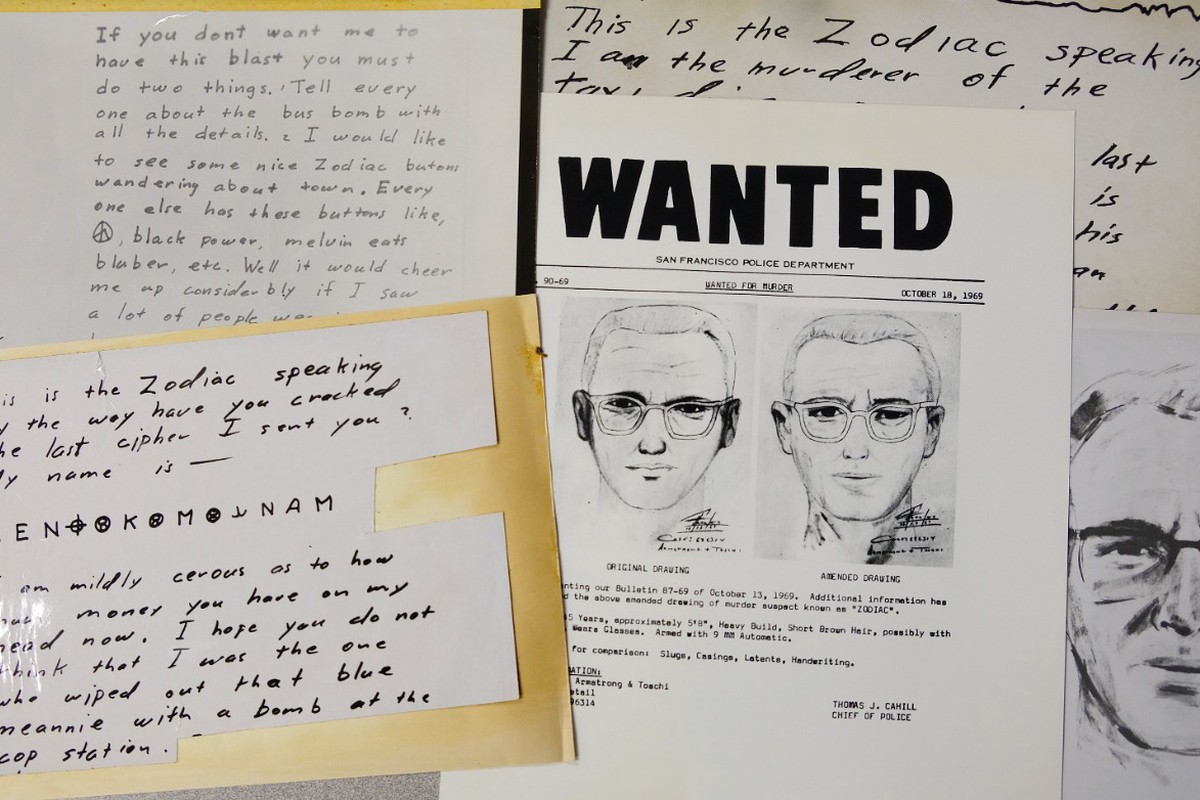 If you dont want me to
have this blast you must
do two things. 1 Tell every
one about the bus bomb with
all the details. 2 I would like
to see some nice Zodiac butons
wandering about town. Every
one else has these buttons like,
☮, black power, melvin eats
bluber, etc. Well it would cheer
me up considerbly if I saw
a lot of people
is is the Zodiac speaking
y the way have you cracked
he last cipher I sent you?
y name is —
EN⌖⊗K⊗M⊗⅄NAM
am mildly cerous as to how
money you have on my
ead now. I hope you do not
hink that I was the one
who wiped out that blue
meannie with a bomb at the
cop station.
This is the Zodiac speaking
I am the murderer of the
last
is
his
an
WANTED
SAN FRANCISCO POLICE DEPARTMENT
90-69 WANTED FOR MURDER OCTOBER 18, 1969
ORIGINAL DRAWING AMENDED DRAWING
nting our Bulletin 87-69 of October 13, 1969. Additional information has
d the above amended drawing of murder suspect known as "ZODIAC".
5 Years, approximately 5'8", Heavy Build, Short Brown Hair, possibly with
Wears Glasses. Armed with 9 MM Automatic.
for comparison: Slugs, Casings, Latents, Handwriting.
MATION:
Armstrong & Toschi
etail
96314
THOMAS J. CAHILL
CHIEF OF POLICE